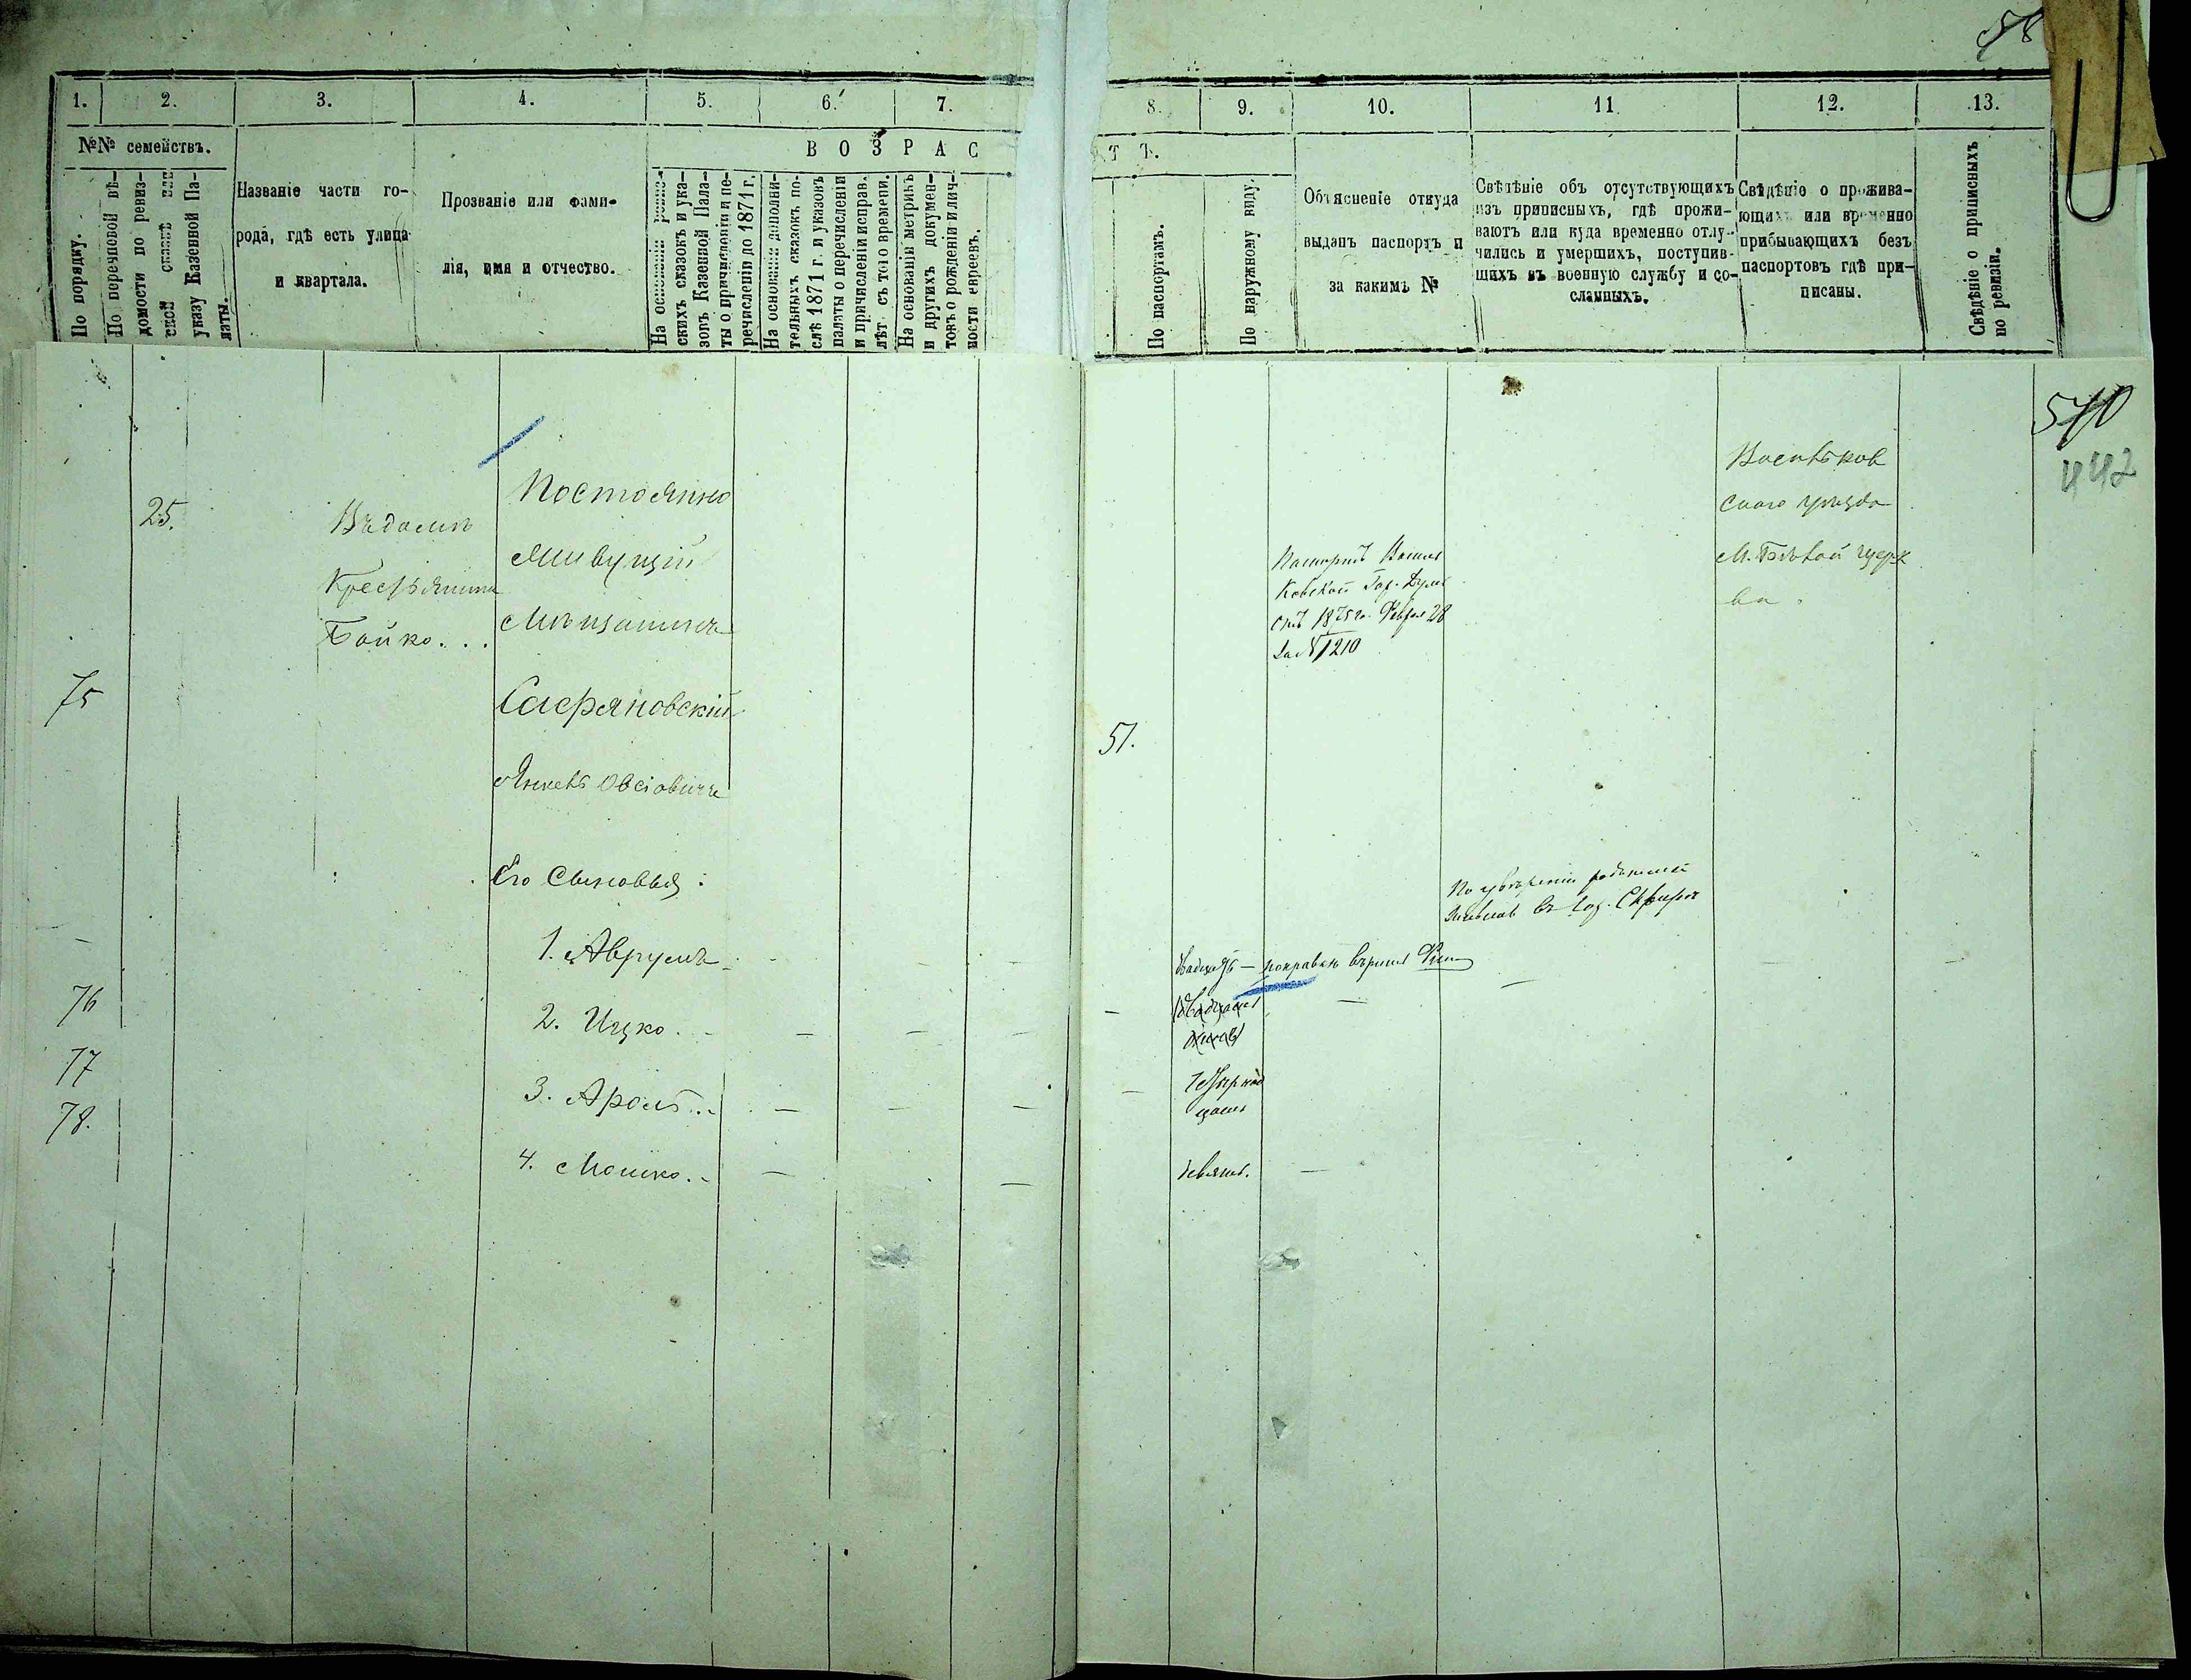 58
1. 2. 3. 4. 5. 6. 7.
8. 9. 10. 11 12. 13.
№№ семействъ.
По порядку.
По перечневой вѣ-
домости по ревиз-
ской сказкѣ или
указу Казенной Па-
латы.
Названіе части го-
рода, гдѣ есть улица
и квартала.
Прозваніе или фами-
лія, имя и отчество.
ВОЗРАС
ТЪ.
На основаніи ревиз-
скихъ сказокъ и ука-
зовъ Казенной Пала-
ты о причисленіи и пе-
речисленіи до 1871 г.
На основаніи дополни-
тельныхъ сказокъ по-
слѣ 1871 г. и указовъ
палаты о перечисленіи
и причисленіи исправ.
лѣт съ того времени.
На основаніи метрикъ
и другихъ докумен-
товъ о рожденіи и лич-
ности евреевъ.
По паспортамъ.
По наружному виду.
Объясненіе откуда
выданъ паспортъ и
за какимъ №
Свѣдѣніе объ отсутствующихъ
изъ приписныхъ, гдѣ прожи-
ваютъ или куда временно отлу-
чились и умершихъ, поступив-
шихъ въ военную службу и со-
сланныхъ.
Свѣдѣніе о прожива-
ющихъ или временно
прибывающихъ безъ
паспортовъ гдѣ при-
писаны.
Свѣдѣніе о приписныхъ
по ревизіи.
540
442
25.
Въ домѣ
Крестьянина
Бойко...
Постоянно
Живущій
Мѣщанинъ
75
Сафяновскій
Янкель Овсіовичъ
Его Сыновья:
1. Аврумъ
76
2. Ицко.
77
3. Аронъ..
78.
4. Мошко.
51.
Паспортъ Василь
ковской Гор. Думы
отъ 1875 г. Февраля 28
за № 1210
Васильков
скаго уѣзда
М. Бѣлой Церк
ви.
По увѣренію родителей
въ гор. Сквирѣ
Двадцать — поправкѣ вѣрить
Четырнад
цать
девять.